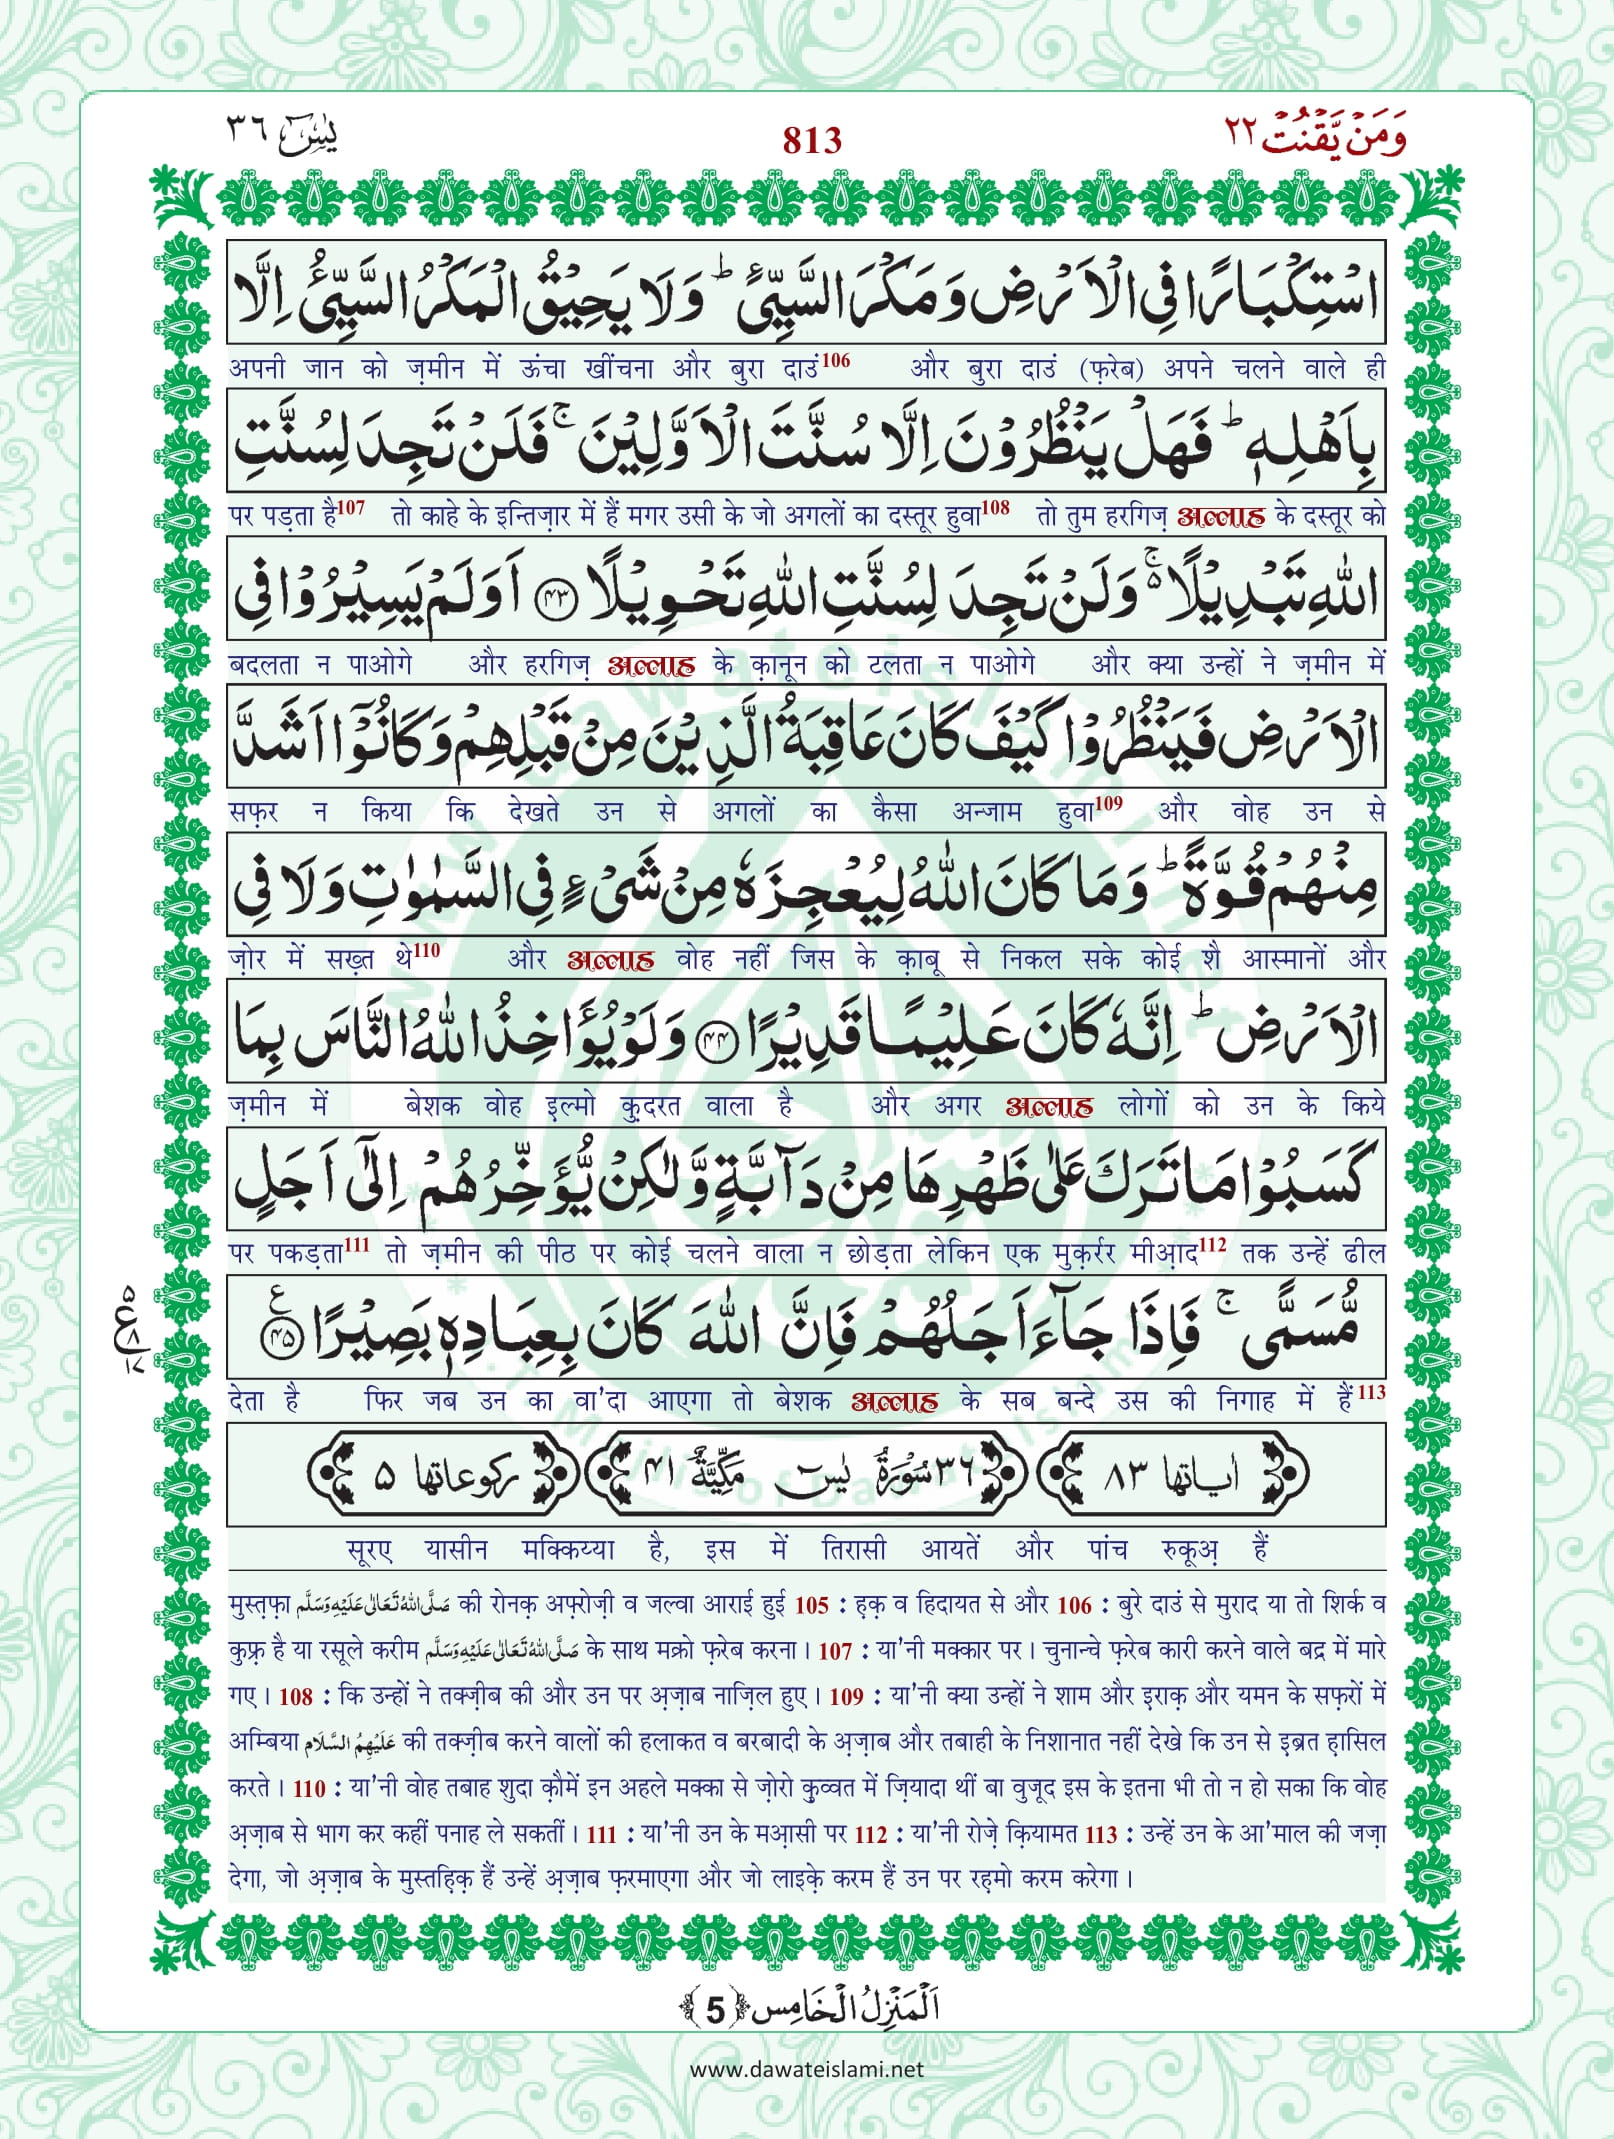 وَمَنْ يَّقْنُتْ ٢٢ 813 يٰسٓ ٣٦
اسْتِكْبَارًا فِی الْاَرْضِ وَ مَكْرَ السَّیِّئِؕ وَ لَا یَحِیْقُ الْمَكْرُ السَّیِّئُ اِلَّا
अपनी जान को ज़मीन में ऊंचा खींचना और बुरा दाउं106 और बुरा दाउं (फ़रेब) अपने चलने वाले ही
بِاَهْلِهٖؕ فَهَلْ یَنْظُرُوْنَ اِلَّا سُنَّتَ الْاَوَّلِیْنَۚ فَلَنْ تَجِدَ لِسُنَّتِ
पर पड़ता है107 तो काहे के इन्तिज़ार में हैं मगर उसी के जो अगलों का दस्तूर हुवा108 तो तुम हरगिज़ अल्लाह के दस्तूर को
اللّٰهِ تَبْدِیْلًا ۚ۬ وَ لَنْ تَجِدَ لِسُنَّتِ اللّٰهِ تَحْوِیْلًا ﴿۴۳﴾ اَوَ لَمْ یَسِیْرُوْا فِی
बदलता न पाओगे और हरगिज़ अल्लाह के क़ानून को टलता न पाओगे और क्या उन्हों ने ज़मीन में
الْاَرْضِ فَیَنْظُرُوْا كَیْفَ كَانَ عَاقِبَةُ الَّذِیْنَ مِنْ قَبْلِهِمْ وَ كَانُوْۤا اَشَدَّ
सफ़र न किया कि देखते उन से अगलों का कैसा अन्जाम हुवा109 और वोह उन से
مِنْهُمْ قُوَّةًؕ وَ مَا كَانَ اللّٰهُ لِیُعْجِزَهٗ مِنْ شَیْءٍ فِی السَّمٰوٰتِ وَ لَا فِی
ज़ोर में सख़्त थे110 और अल्लाह वोह नहीं जिस के क़ाबू से निकल सके कोई शै आस्मानों और
الْاَرْضِؕ اِنَّهٗ كَانَ عَلِیْمًا قَدِیْرًا ﴿۴۴﴾ وَ لَوْ یُؤَاخِذُ اللّٰهُ النَّاسَ بِمَا
ज़मीन में बेशक वोह इल्मो क़ुदरत वाला है और अगर अल्लाह लोगों को उन के किये
كَسَبُوْا مَا تَرَكَ عَلٰى ظَهْرِهَا مِنْ دَآبَّةٍ وَّ لٰكِنْ یُّؤَخِّرُهُمْ اِلٰۤى اَجَلٍ
पर पकड़ता111 तो ज़मीन की पीठ पर कोई चलने वाला न छोड़ता लेकिन एक मुक़र्रर मीआ़द112 तक उन्हें ढील
مُّسَمًّىۚ فَاِذَا جَآءَ اَجَلُهُمْ فَاِنَّ اللّٰهَ كَانَ بِعِبَادِهٖ بَصِیْرًا ﴿۴۵﴾ ع
देता है फिर जब उन का वा'दा आएगा तो बेशक अल्लाह के सब बन्दे उस की निगाह में हैं113
اٰیاتها ٨٣ ٣٦ سُوْرَةُ یٰسٓ مَكِّیَّةٌ ٤١ ركوعاتها ٥
सूरए यासीन मक्किय्या है, इस में तिरासी आयतें और पांच रुकूअ़ हैं
मुस्त़फ़ा صَلَّى اللّٰهُ تَعَالٰى عَلَيْهِ وَسَلَّم की रोनक़ अफ़्रोज़ी व जल्वा आराई हुई 105 : ह़क़ व हिदायत से और 106 : बुरे दाउं से मुराद या तो शिर्क व
कुफ़्र है या रसूले करीम صَلَّى اللّٰهُ تَعَالٰى عَلَيْهِ وَسَلَّم के साथ मक्रो फ़रेब करना। 107 : या'नी मक्कार पर। चुनान्चे फ़रेब कारी करने वाले बद्र में मारे
गए। 108 : कि उन्हों ने तक्ज़ीब की और उन पर अ़ज़ाब नाज़िल हुए। 109 : या'नी क्या उन्हों ने शाम और इराक़ और यमन के सफ़रों में
अम्बिया عَلَيْهِمُ السَّلَام की तक्ज़ीब करने वालों की हलाकत व बरबादी के अ़ज़ाब और तबाही के निशानात नहीं देखे कि उन से इब्रत ह़ासिल
करते। 110 : या'नी वोह तबाह शुदा क़ौमें इन अहले मक्का से ज़ोरो क़ुव्वत में ज़ियादा थीं बा वुजूद इस के इतना भी तो न हो सका कि वोह
अ़ज़ाब से भाग कर कहीं पनाह ले सकतीं। 111 : या'नी उन के मआ़सी पर 112 : या'नी रोज़े क़ियामत 113 : उन्हें उन के आ'माल की जज़ा
देगा, जो अ़ज़ाब के मुस्तह़िक़ हैं उन्हें अ़ज़ाब फ़रमाएगा और जो लाइक़े करम हैं उन पर रह़मो करम करेगा।
اَلْمَنْزِلُ الْخَامِس ﴿5﴾
www.dawateislami.net